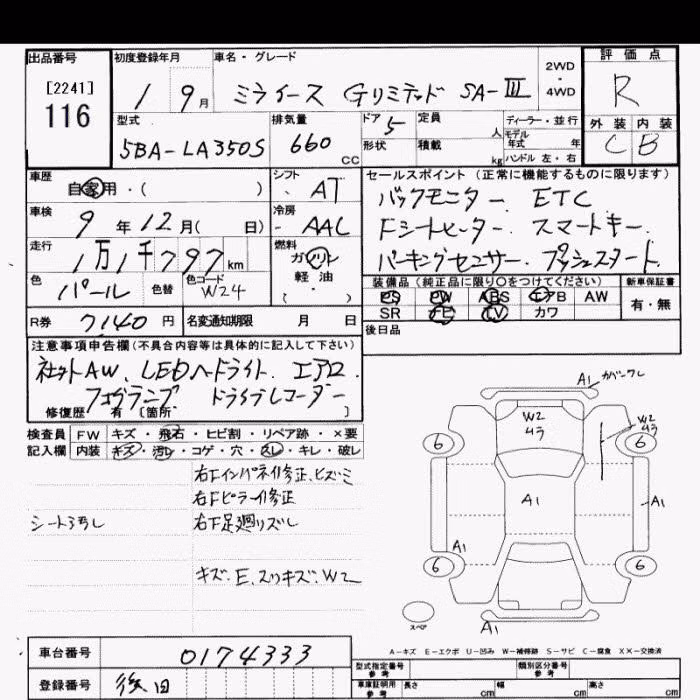 出品番号
[2241]
116
初度登録年月
1 9月
車名・グレード
ミライース Gリミテッド SA-Ⅲ
2WD
・
4WD
評価点
R
外装 内装
C B
型式
5BA-LA350S
排気量
660 cc
ドア 5
形状
定員 人
積載 kg
ディーラー・並行
モデル年式 年
ハンドル 左・右
車歴
自家用・( )
シフト
AT
車検
9年12月( 日)
冷房
AAC
走行
1万1千797km
燃料
ガソリン
軽油
( )
色
パール
色替
色コード
W24
R券 7140円
名変通知期限 月 日
セールスポイント(正常に機能するものに限ります)
バックモニター. ETC
Fシートヒーター. スマートキー.
パーキングセンサー. プッシュスタート
装備品(純正品に限り○をつけてください)
PS PW ABS エアB AW
SR ナビ TV カワ
新車保証書
有・無
後日品
注意事項申告欄(不具合内容等は具体的に記入して下さい)
社外AW、LEDヘッドライト、エアロ
フォグランプ ドライブレコーダー
修復歴 有 〔箇所 〕
検査員 FW キズ・飛石・ヒビ割・リペア跡・×要
記入欄 内装 キズ・汚レ・コゲ・穴・スレ・キレ・破レ
右Fインパネ修正、ヒズミ
右Fピラー修正
シート汚レ
右F足廻リズレ
キズ、E、スリキズ、W2
A1 ガバークレ
W2
ムラ
W2
ムラ
6 6
A1
A1
A1
6 6
スペア
A1
A-キズ E-エクボ U-凹み W-補修跡 S-サビ C-腐食 XX-交換済
車台番号 0174333
登録番号 後日
型式指定番号 参考
類別区分番号 参考
車庫証明用 参考 長さ cm 幅 cm 高さ cm